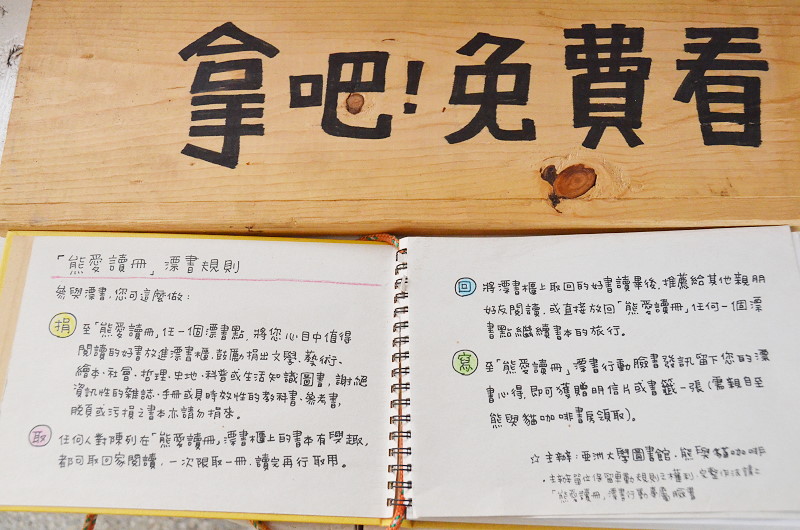 拿吧!免費看
「熊愛讀冊」漂書規則
參與漂書,您可這麼做:
捐 至「熊愛讀冊」任一個漂書點,將您心目中值得
閱讀的好書放進漂書櫃,鼓勵捐出文學、藝術、
繪本、社會、哲理、史地、科普或生活知識圖書,謝絕
資訊性的雜誌、手冊或具時效性的教科書、參考書,
脫頁或污損之書本亦請勿捐來。
取 任何人對陳列在「熊愛讀冊」漂書櫃上的書本有興趣,
都可取回家閱讀,一次限取一冊,讀完再行取用。
回 將漂書櫃上取回的好書讀畢後,推薦給其他親朋
好友閱讀,或直接放回「熊愛讀冊」任何一個漂
書點繼續書本的旅行。
寫 至「熊愛讀冊」漂書行動臉書發訊留下您的漂
書心得,即可獲贈明信片或書籤一張(需親自至
熊與貓咖啡書房領取)。
☆主辦:亞洲大學圖書館、熊與貓咖啡
·主辦單位保留更動規則之權利,完整作法請上
「熊愛讀冊」漂書行動專屬臉書